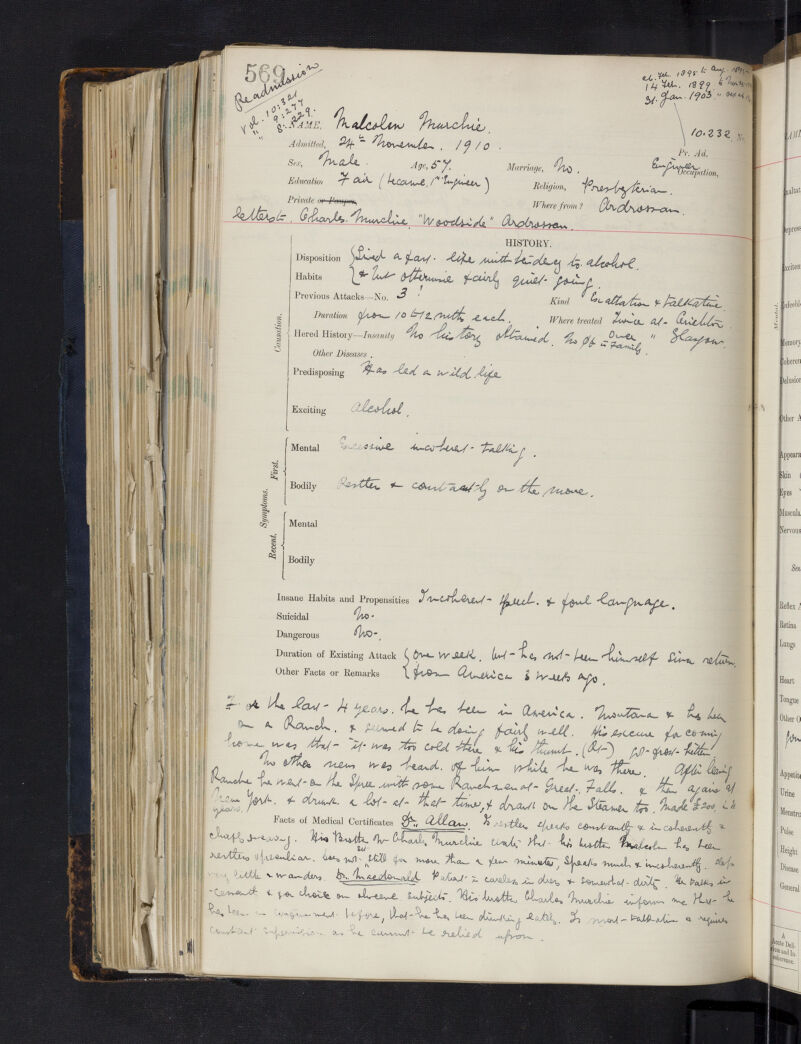 569
Readmission
Vol. 10:321
" 9:277
" 8:229.
14 Feb. 1899
31 Jan. 1903
10.232
NAME, Malcolm Murchie.
Admitted, 24th November. 1910.
Pr. Ad.
Sex, Male. Age, 57. Marriage, No. Engineer Occupation,
Education Fair (became 1st Engineer) Religion, Presbyterian.
Private or Pauper, Where from? Ardrossan.
letters to Charles Murchie, "Woodside" Ardrossan.
HISTORY.
Disposition Lived a fast life with tendency to alcohol.
Habits & but otherwise fairly quiet going.
Previous Attacks—No. 3! Kind Exaltation & talkative
Duration from 10 to 12 mths each. Where treated Twice at Crichton
Once " Glasgow.
Hered History—Insanity No history obtained. No in Family.
Other Diseases.
Predisposing Has led a wild life
Exciting Alcohol.
Causation.
Mental Excessive incoherent talking.
Bodily Restless & constantly on the move.
First.
Symptoms.
Mental
Bodily
Recent.
Insane Habits and Propensities Incoherent speech & foul language.
Suicidal No.
Dangerous No.
Duration of Existing Attack One week, but has not been himself since return
Other Facts or Remarks from America 3 weeks ago.
For the last 4 years he has been in America. Montana & has been
on a Ranch, & seemed to be doing fairly well. His excuse for coming
home was that it was too cold there & his thumb (Rt) got frost-bitten.
No other news was heard of him while he was there. After leaving
Ranche he went on the Spree with some Ranchmen at Great Falls. & then again at
New York. & drank a lot at that time, & drank on the Steamer too. Made £200 in
years.
Facts of Medical Certificates Dr. Allan. Is restless speaks constantly & incoherently &
His Brother Mr Charles Murchie writes that his brother Malcolm has been
restless & peculiar. Does not sit still for more than a few minutes, speaks much & incoherently. Sleeps
very little & wanders. Dr. Macdonald Patient is careless in dress & somewhat dirty. He talks in
on obscene subjects. His brother Charles Murchie informs me that he
has been in confinement before, that he has been drinking lately. Is most talkative & requires
constant supervision as he cannot be relied upon.